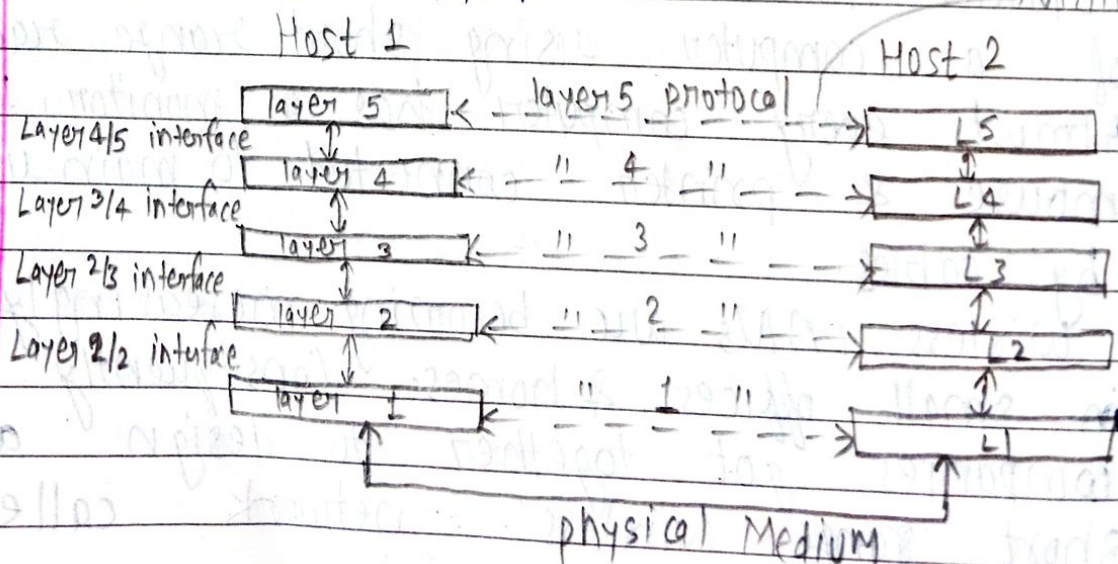 Host 1
Host 2
layer 5 <- - - layer 5 protocol - - -> L5
Layer 4/5 interface
layer 4 <- - " 4 " - -> L4
Layer 3/4 interface
layer 3 <- - " 3 " - -> L3
Layer 2/3 interface
layer 2 <- - " 2 " - -> L2
Layer 2/2 interface
layer 1 <- - " 1 " - -> L1
physical Medium